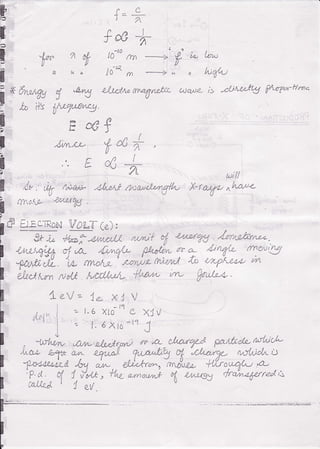 f = c/λ
f ∝ 1/λ
for λ of 10⁻¹⁰ m → "f" is low
" " " 10⁻¹² m → " " high
* Energy of any electromagnetic wave is directly proportional
to it's frequency.
E ∝ f
since f ∝ 1/λ,
∴ E ∝ 1/λ
So, if short wavelength X-rays will have
more energy.
ELECTRON VOLT (e):
It is small unit of energy. Sometimes,
energy of a single photon or a single moving
particle is more convenient to express in
electron volt rather than in Joules.
1 eV = 1e × 1 V
= 1.6 X10⁻¹⁹ C X1V
= 1.6 X10⁻¹⁹ J
when an electron or a charged particle which
has an equal quantity of charge which is
possessed by an electron, moves through a
P.d. of 1 volt, the amount of energy transferred is
called 1 eV.